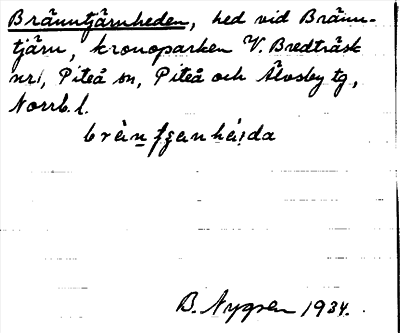 Bränntjärnheden, hed vid Bränn-
tjärn, kronoparken V. Bredträsk
nr 1, Piteå sn, Piteå och Älvsby tg,
Norrb. l.
B. Nygren 1934.